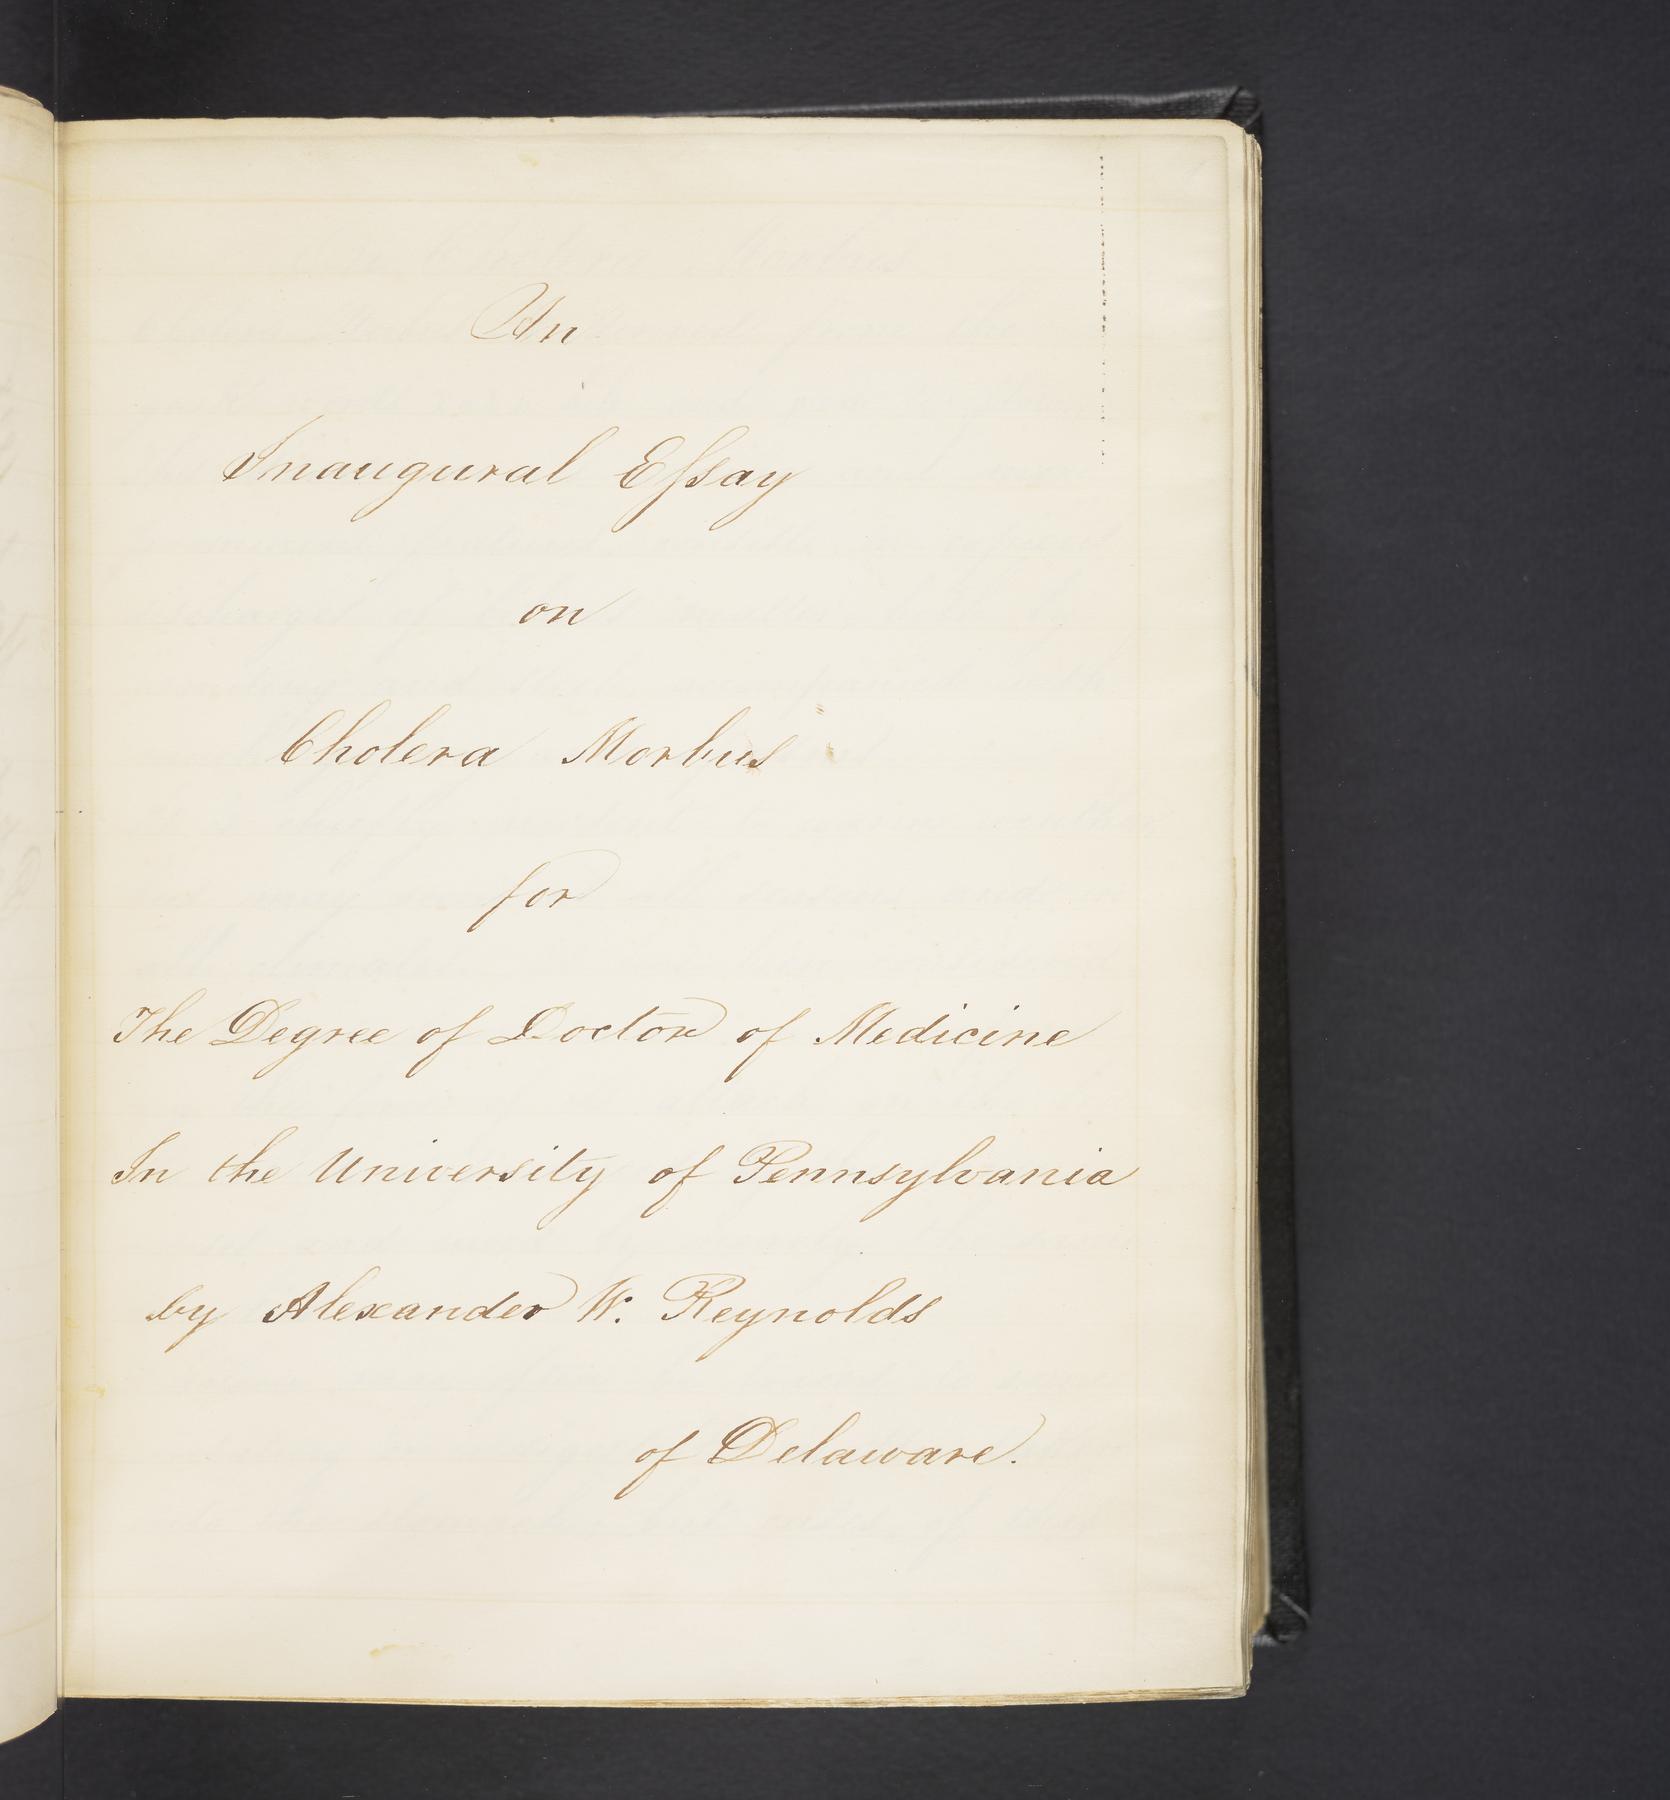 An
Inaugural Eſsay
on
Cholera Morbus
for
The Degree of Doctor of Medicine
In the University of Pennsylvania
by Alexander W. Reynolds
of Delaware.